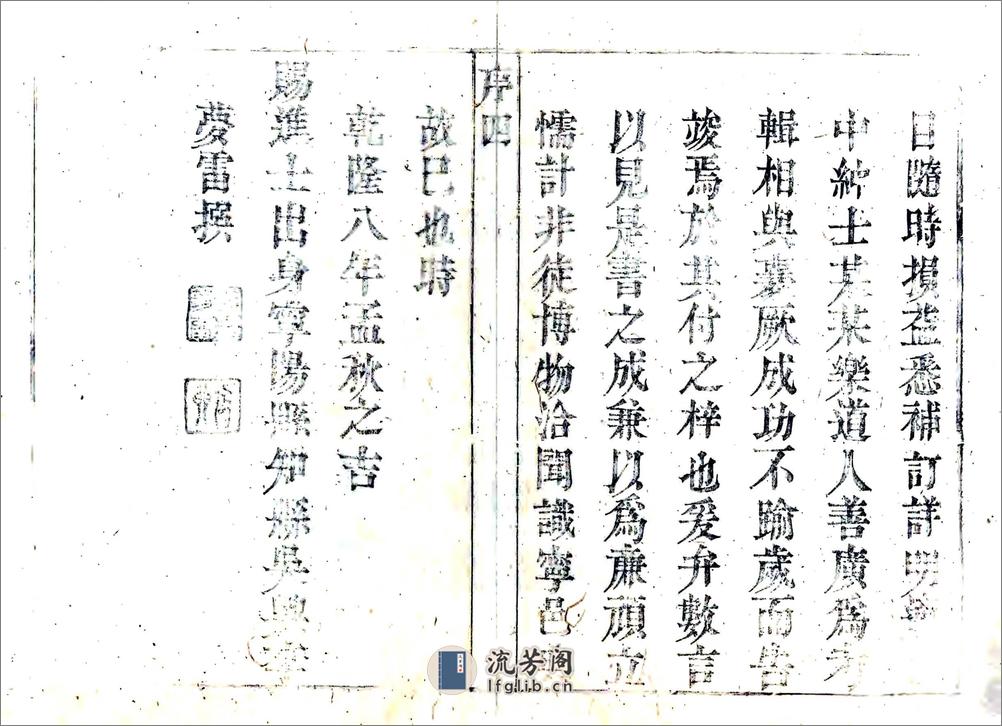 日隨時損益悉補訂詳明
中紳士某某樂道人善廣爲考
輯相與襄厥成功不踰歲而告
竣焉於其付之梓也爰弁數言
以見是書之成兼以爲亷頑立
懦計非徒博物洽聞識寧邑
序四
故巳也時
乾隆八年孟秋之吉
賜進士出身寧陽縣知縣吳興李
夢雷撰
流芳阁
lfglib.cn